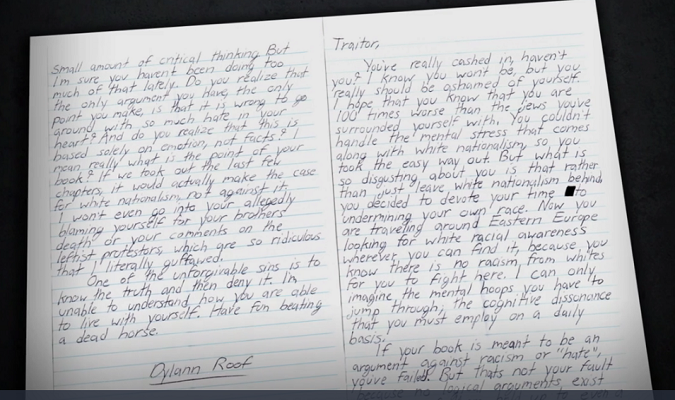 small amount of critical thinking But
I'm sure you haven't been doing too
much of that lately. Do you realize that
the only argument you have, the only
point you make, is that it is wrong to go
around with so much hate in your
heart? And do you realize that this is
based solely on emotion, not facts? I
mean really what is the point of your
book? If we took out the last few
chapters, it would actually make the case
for white nationalism, not against it.
I won't even go into your allegedly
blaming yourself for your brothers
death or your comments on the
leftist protestors, which are so ridiculous
that I literally guffawed.
One of the unforgivable sins is to
know the truth and then deny it. Im
unable to understand how you are able
to live with yourself. Have fun beating
a dead horse.
Dylann Roof
Traitor,
You've really cashed in, haven't
you? I know you wont be, but you
really should be ashamed of yourself.
I hope that you know that you are
100 times worse than the jews you've
surrounded yourself with. You couldn't
handle the mental stress that comes
along with white nationalism, so you
took the easy way out. But what is
so disgusting about you is that rather
than just leave white nationalism behind,
you decided to devote your time to
undermining your own race. Now you
are traveling around Eastern Europe
looking for white racial awareness
wherever you can find it, because you
know there is no racism from whites
for you to fight here. I can only
imagine the mental hoops you have to
jump through, the cognitive dissonance
that you must employ on a daily
basis.
If your book is meant to be an
argument against racism or "hate",
youve failed. But thats not your fault
because no logical arguments, exist